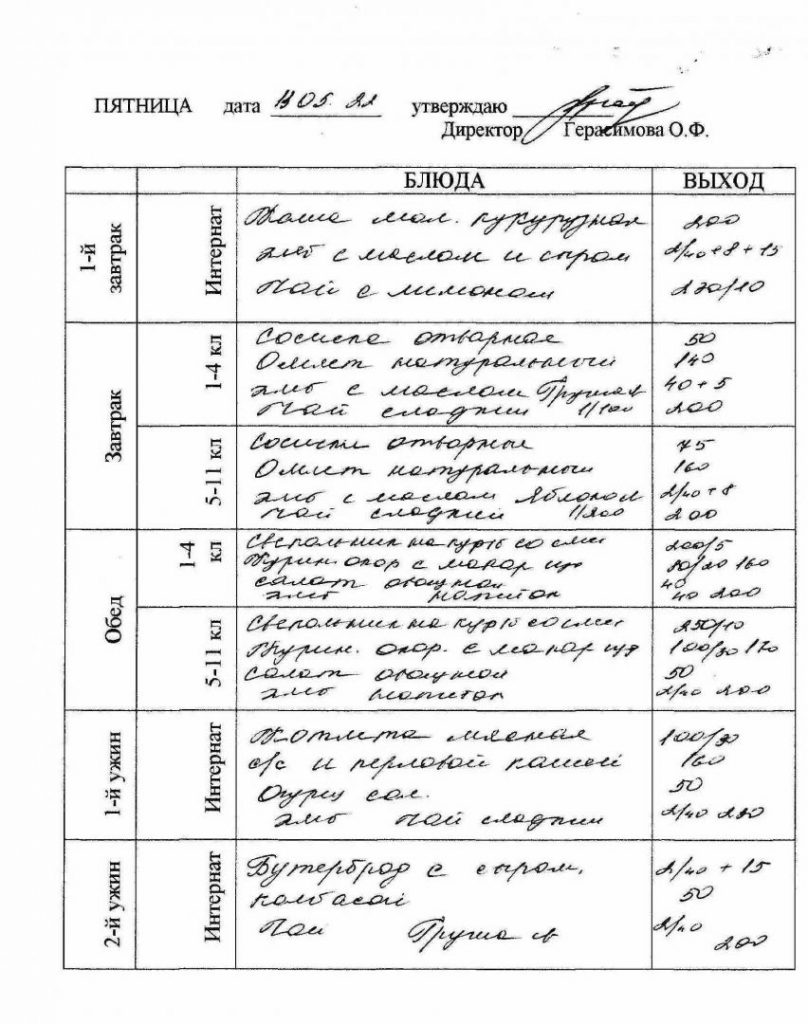 ПЯТНИЦА дата 13 05. 22 утверждаю
Директор Герасимова О.Ф.
БЛЮДА ВЫХОД
1-й завтрак Интернат
Каша мол. кукурузная 200
хлеб с маслом и сыром 2/40+8+15
Чай с лимоном 230/10
Завтрак 1-4 кл
Сосиска отварная 50
Омлет натуральный 140
хлеб с маслом Груша 40+5
Чай сладкий 1/100 200
5-11 кл
Сосиски отварные 75
Омлет натуральный 160
хлеб с маслом Яблоком 2/40+8
чай сладкий 1/200 200
Обед 1-4 кл
Свекольник на курб со см 200/5
Курин. окор с макар 160
салат овощной 40
хлеб напиток 40 200
5-11 кл
Свекольник на курб со см 250/10
Курин. окор. с макар 100/30 170
салат овощной 50
хлеб напиток 2/40 200
1-й ужин Интернат
Котлета мясная 100/30
с/с и перловой кашей 160
Огурец сол. 50
хлеб чай сладкий 2/40 230
2-й ужин Интернат
Бутерброд с сыром, 2/40 + 15
колбасой 50
Чай Груша 2/40
200